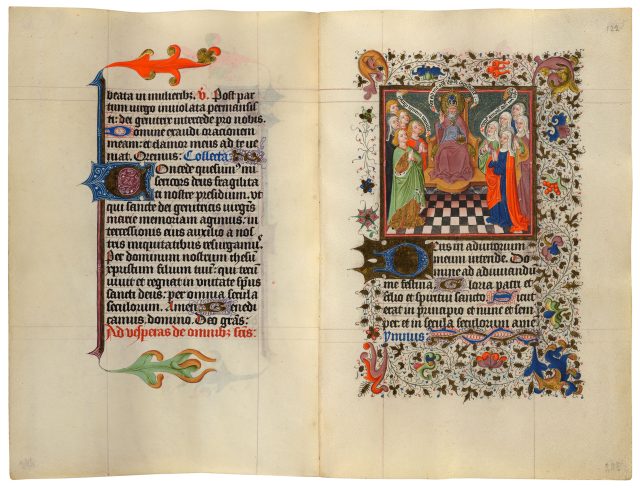 beata in mulieribꝫ. ꝟ. Post par
tum uirgo inuiolata permansis
ti: dei genitrix intercede pro nobis.
Domine exaudi oracionem
meam: et clamor meus ad te ue
niat. Oremus: Collecta
Concede quesumꝰ mi
sericors deus fragilita
ti nostre presidium. vt
qui sancte dei genitricis uirginis
marie memoriam agimus: in
tercessionis eius auxilio a nos
tris iniquitatibus resurgamus.
Per dominum nostrum ihesū
cristum filium tuū: qui tecū
uiuit et regnat in unitate spūs
sancti deus: per omnia secula
seculorum. Amen. Benedi
camus domino. Deo gr̄as:
Ad vesperas de omnibꝫ sc̄is:
122
Deus in adiutorium
meum intende. Do
mine ad adiuuandum
me festina. Gloria patri et
filio et spiritui sancto. Sicut
erat in principio et nunc et sem
per: et in secula seculorum amē
ymnus: